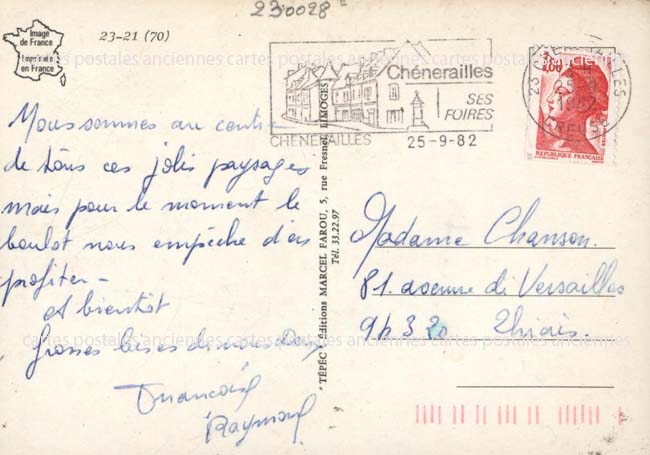 230028
23-21 (70)
Image
de France
Imprimé
en France
Chénerailles
SES
FOIRES
CHENERAILLES
25-9-82
23 CHENERAILLES
25-9
1982
CREUSE
2,00
REPUBLIQUE FRANÇAISE
cartes postales anciennes cartes postales anciennes cartes postales anciennes
Nous sommes au centre
de tous ces jolis paysages
mais pour le moment le
boulot nous empêche d'en
profiter -
A bientôt
Grosses bises de nous Deux
Raymond
"TÉPÉC" éditions MARCEL FAROU, 5, rue Fresnel, LIMOGES
Tél. 33.22.97
Madame Chanson.
81. avenue de Versailles
94320 Thiais.
cartes postales anciennes cartes postales anciennes cartes postales anciennes